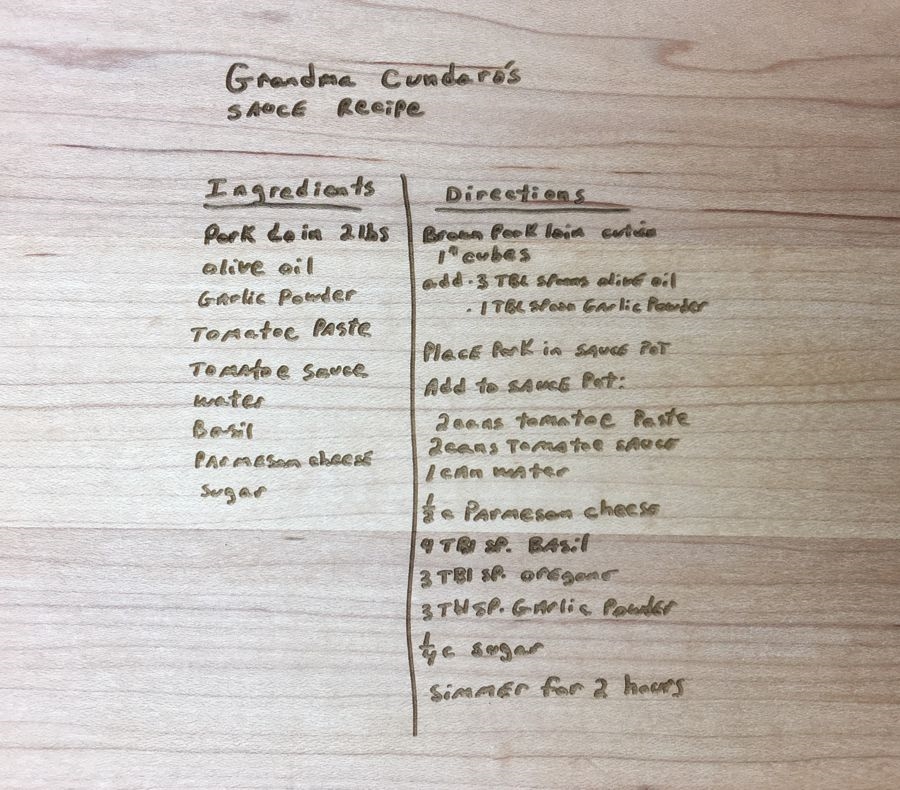 Grandma Cundaro's
SAUCE RECIPE
Ingredients
Pork Loin 2 lbs
olive oil
Garlic Powder
Tomatoe Paste
Tomatoe sauce
water
Basil
Parmesan cheese
sugar
Directions
Brown Pork loin
1" cubes
add . 3 TBL spoons olive oil
. 1 TBL spoon Garlic Powder
Place Pork in sauce Pot
Add to sauce Pot:
2 cans tomatoe Paste
2 cans Tomatoe sauce
1 can water
c Parmesan cheese
TBl SP. Basil
3 TBl SP. oregano
3 SP. Garlic Powder
1/4 c sugar
Simmer for 2 hours